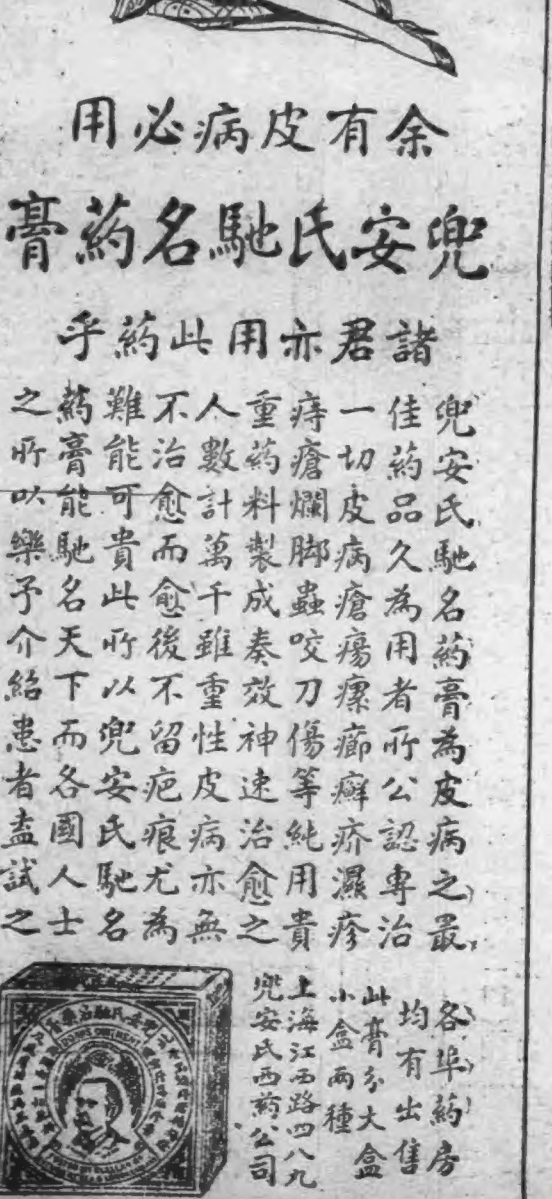 余有皮病必用
兜安氏馳名药膏
諸君亦用此药乎
兜安氏馳名药膏為皮病之最
佳药品久為用者所公認專治
一切皮病瘡瘍瘰癤癬疥濕疹
痔瘡爛脚蟲咬刀傷等純用貴
重药料製成奏效神速治愈之
人數計萬千雖重性皮病亦無
不治愈而愈後不留疤痕尤為
難能可貴此所以兜安氏馳名
药膏能馳名天下而各國人士
之所以樂予介紹患者盍試之
各埠药房
均有出售
此膏分大盒
小盒兩種
上海江西路四八九
兜安氏西药公司